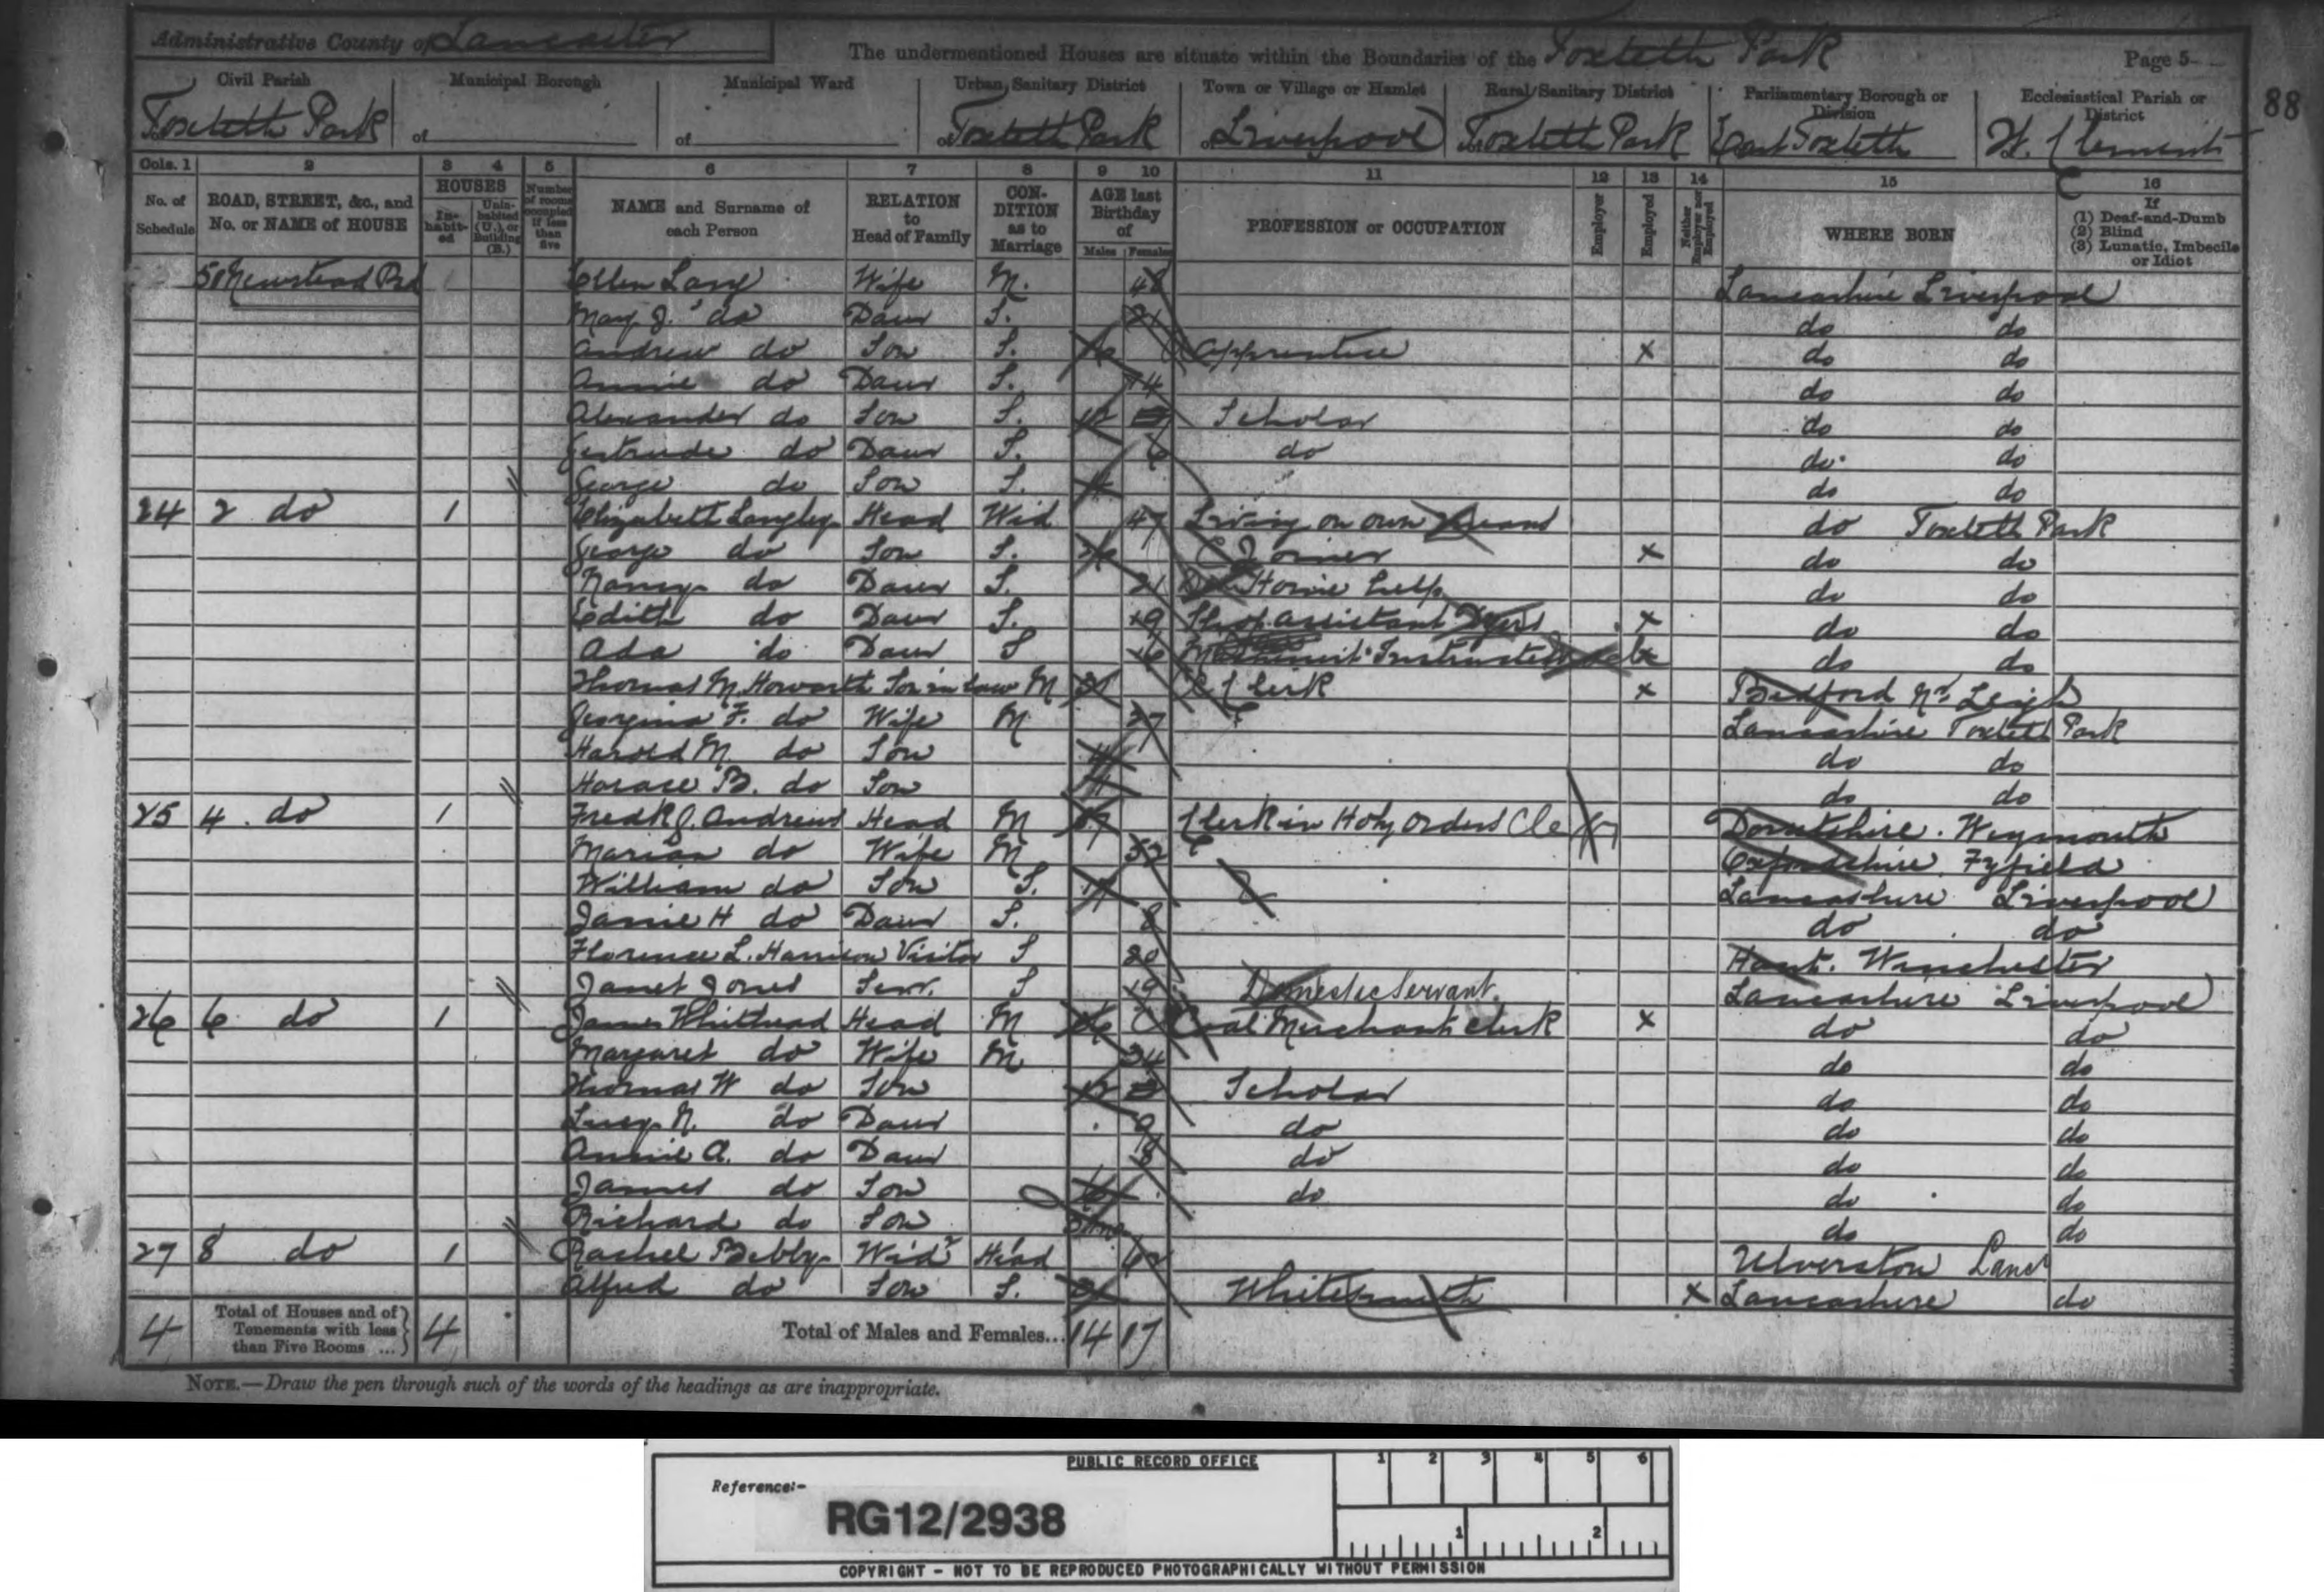 Administrative County of Lancaster
The undermentioned Houses are situate within the Boundaries of the Toxteth Park
Page 5
88
Civil Parish Municipal Borough Municipal Ward Urban Sanitary District Town or Village or Hamlet Rural Sanitary District Parliamentary Borough or Division Ecclesiastical Parish or District
Toxteth Park of of of Toxteth Park of Liverpool Toxteth Park East Toxteth St. Clements
Cols. 1 2 3 4 5 6 7 8 9 10 11 12 13 14 15 16
No. of Schedule ROAD, STREET, &c., and No. or NAME of HOUSE HOUSES Inhabited Uninhabited (U.), or Building (B.) Number of rooms occupied if less than five NAME and Surname of each Person RELATION to Head of Family CONDITION as to Marriage AGE last Birthday of Males Females PROFESSION or OCCUPATION Employer Employed Neither Employer nor Employed WHERE BORN If (1) Deaf-and-Dumb (2) Blind (3) Lunatic, Imbecile or Idiot
Newstead Rd Ellen Lang Wife M. 48 Lancashire Liverpool
Mary J. do Daur S. 21 do do
Andrew do Son S. 16 Apprentice x do do
Annie do Daur S. 14 do do
Alexander do Son S. 12 Scholar do do
Gertrude do Daur S. 6 do do do
George do Son S. do do
24 2 do 1 Elizabeth Langley Head Wid 47 Living on own Means do Toxteth Park
George do Son S. 26 Joiner x do do
Nancy do Daur S. 21 Home help do do
Edith do Daur S. 19 Shop assistant Dyers x do do
Ada do Daur S 16 do do
Thomas M. Howarth Son in law M Clerk x Bedford Nr Leigh
Georgina F. do Wife M 27 Lancashire Toxteth Park
Harold M. do Son do do
Horace B. do Son do do
25 4 do 1 Fredk J. Andrews Head M Clerk in Holy Orders Cle Dorsetshire. Weymouth
Marian do Wife M 52 Oxfordshire. Fyfield
William do Son S. Lancashire Liverpool
Janie H do Daur S. 8 do do
Florence L. Harrison Visitor S 20 Hants. Winchester
Janet Jones Serv. S 19 Domestic Servant. Lancashire Liverpool
26 6 do 1 James Whithead Head M 36 Coal Merchant clerk x do do
Margaret do Wife M 34 do do
Thomas W do Son 12 Scholar do do
Lucy N. do Daur 9 do do do
Annie A. do Daur 8 do do do
James do Son do do do
Richard do Son do do
27 8 do 1 Rachel Bibby Widr Head 62 Ulverston Lancs
Alfred do Son S. Whitesmith x Lancashire do
4 Total of Houses and of Tenements with less than Five Rooms ... 4 Total of Males and Females... 14 17
NOTE.—Draw the pen through such of the words of the headings as are inappropriate.
PUBLIC RECORD OFFICE
1 2 3 4 5 6
Reference:-
RG12/2938
1 2
COPYRIGHT - NOT TO BE REPRODUCED PHOTOGRAPHICALLY WITHOUT PERMISSION